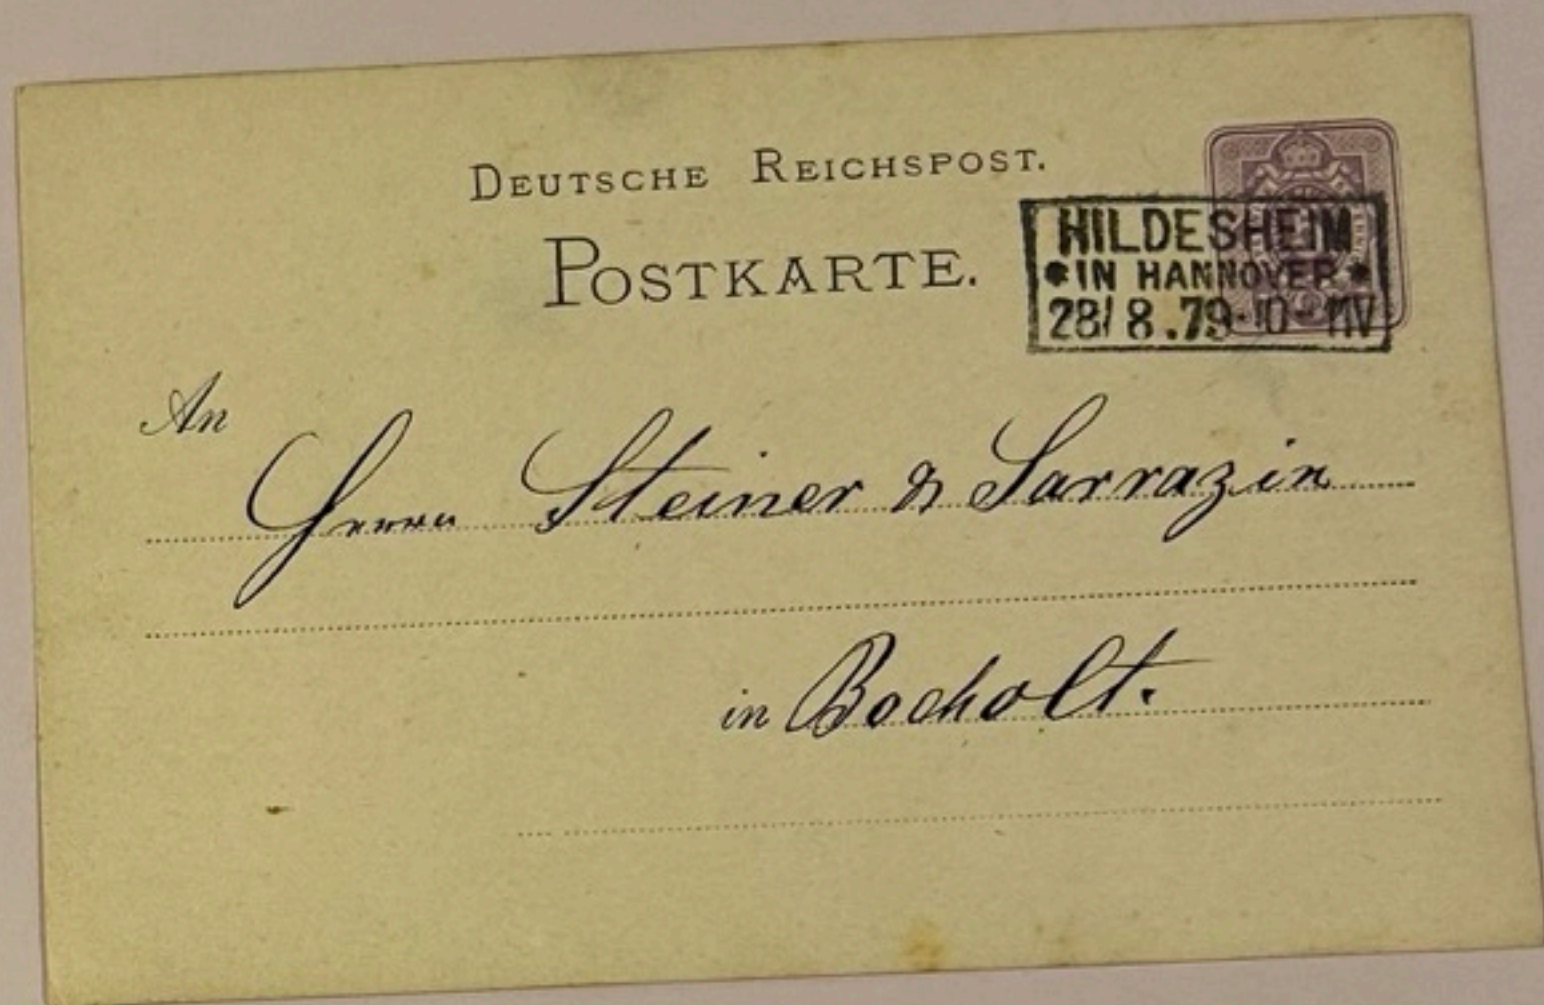 DEUTSCHE REICHSPOST.
POSTKARTE.
HILDESHEIM
*IN HANNOVER*
28/8.79·10-11V
An
Herren Steiner & Sarrazin
in Bocholt.